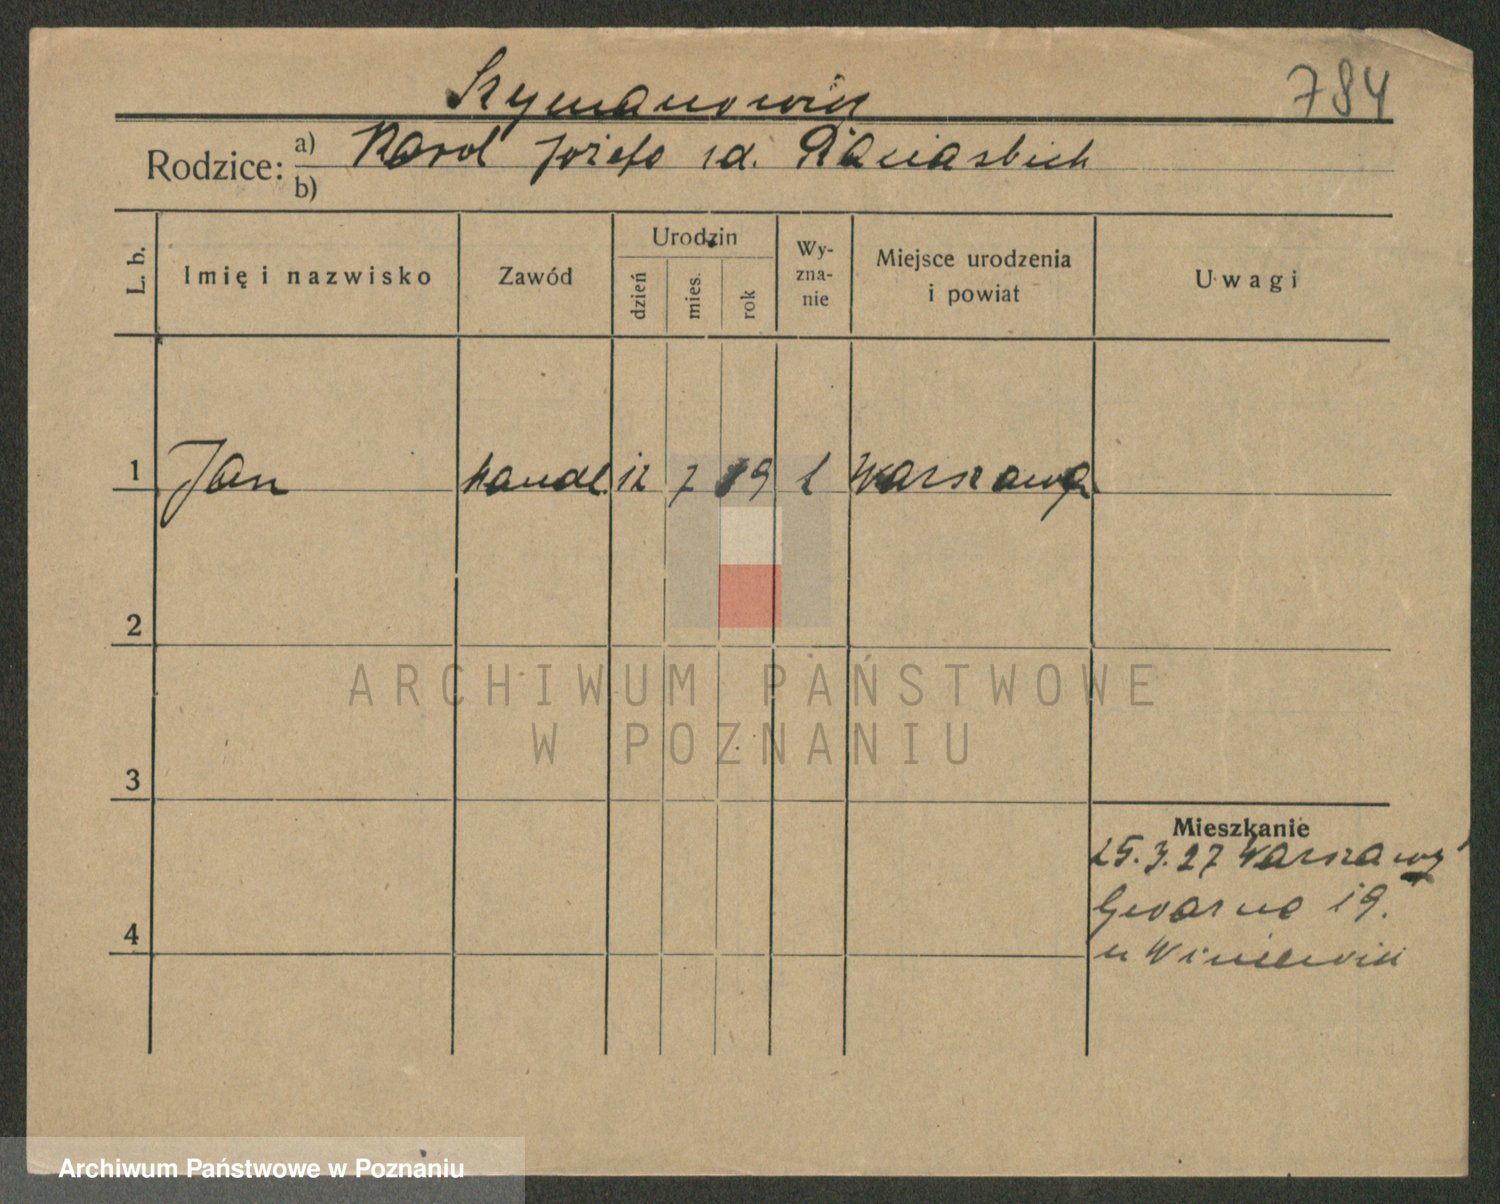 Szymanowicz
784
Rodzice: a) Karol Józefa zd.
b)
L. b.
Imię i nazwisko
Zawód
Urodzin
dzień
mies.
rok
Wy-
zna-
nie
Miejsce urodzenia
i powiat
Uwagi
1 Jan handl. 12 7 89 Warszawa
2
3
4
Mieszkanie
25.3.27 Warszawy
Gwarna 19.
u
ARCHIWUM PAŃSTWOWE
W POZNANIU
Archiwum Państwowe w Poznaniu